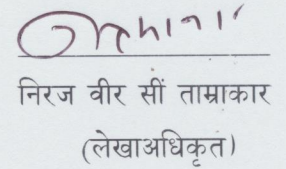 निरज वीर सीं ताम्राकार
(लेखाअधिकृत)